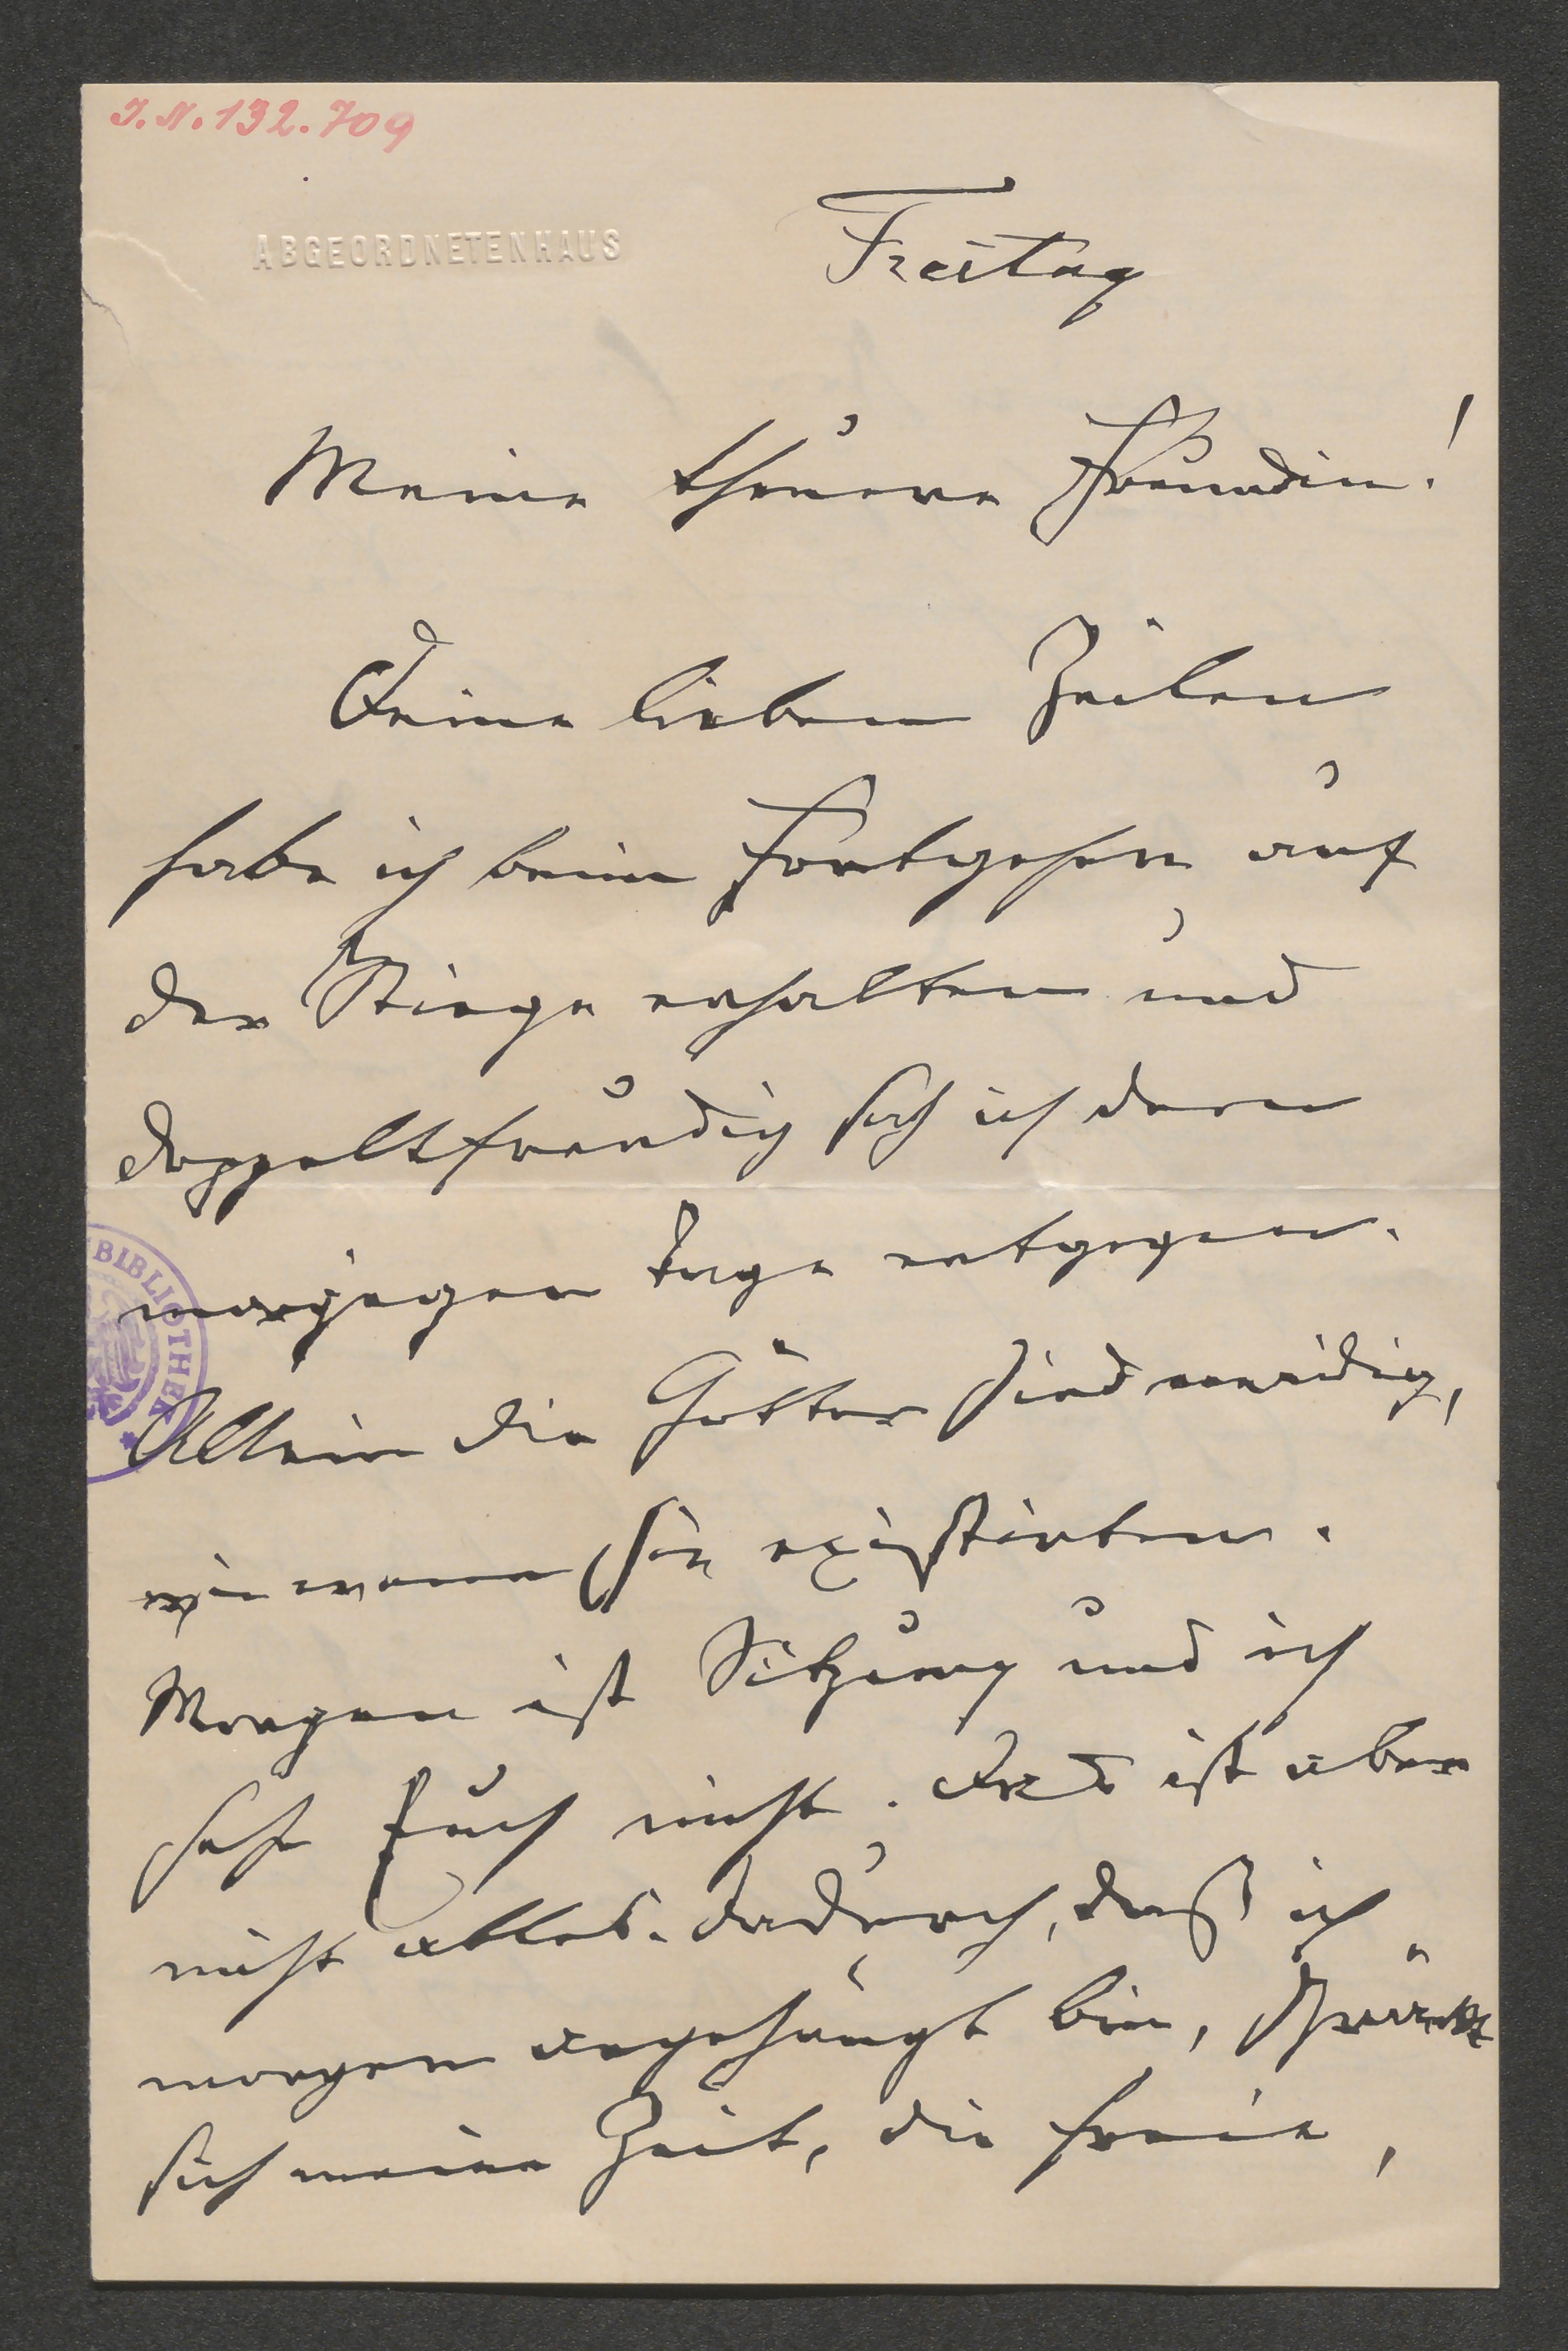 J.N. 132.709
ABGEORDNETENHAUS
Freitag
Meine theuere Freundin!
Deine lieben Zeilen
habe ich beim Fortgehen auf
der Stiege erhalten und
doppelt freudig sah ich dem
morgigen Tage entgegen.
Allein die Götter sind neidig,
wie wenn sie existirten.
Morgen ist Sitzung und ich
sehe Euch nicht. Das ist aber
nicht alles. Dadurch, daß ich
morgen angehängt bin, schränkt
sich meine Zeit, die freie,
BIBLIOTHEK